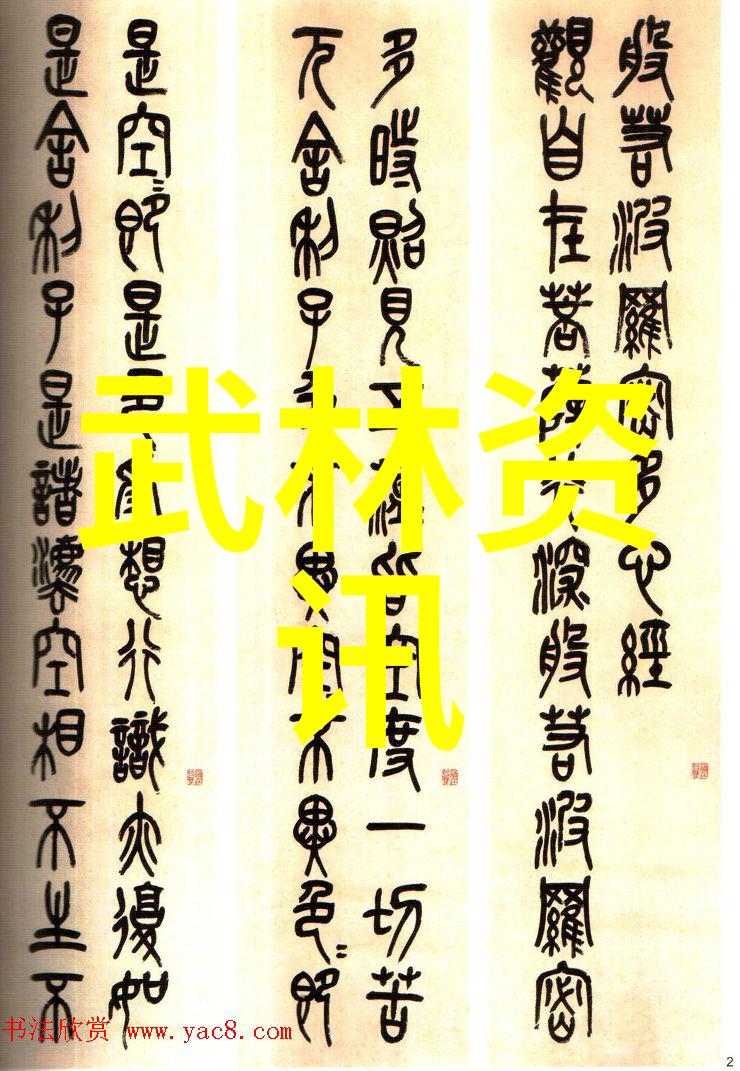 般若波羅密多心經
觀自在菩薩行深般若波羅密
多時照見五蘊皆空度一切苦
厄舍利子色不異空不異色〻即
是空〻即是色受想行識亦復如
是舍利子是諸灋空相不生不
武林资
讯
书法欣赏 www.yac8.com
2